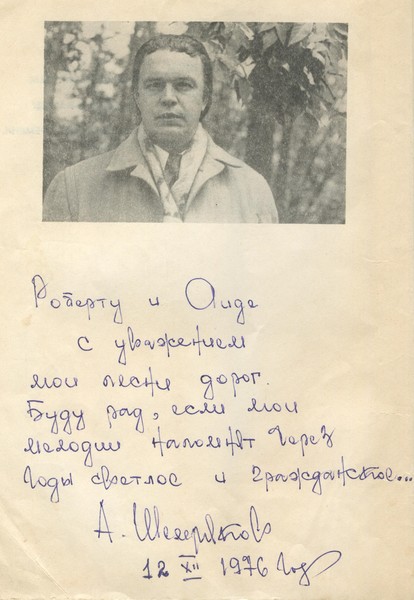 Роберту и Аиде
с уважением
мои песни дорог.
Буду рад, если мои
мелодии напомнят через
годы светлое и гражданское...
А.
12 XII 1976 год